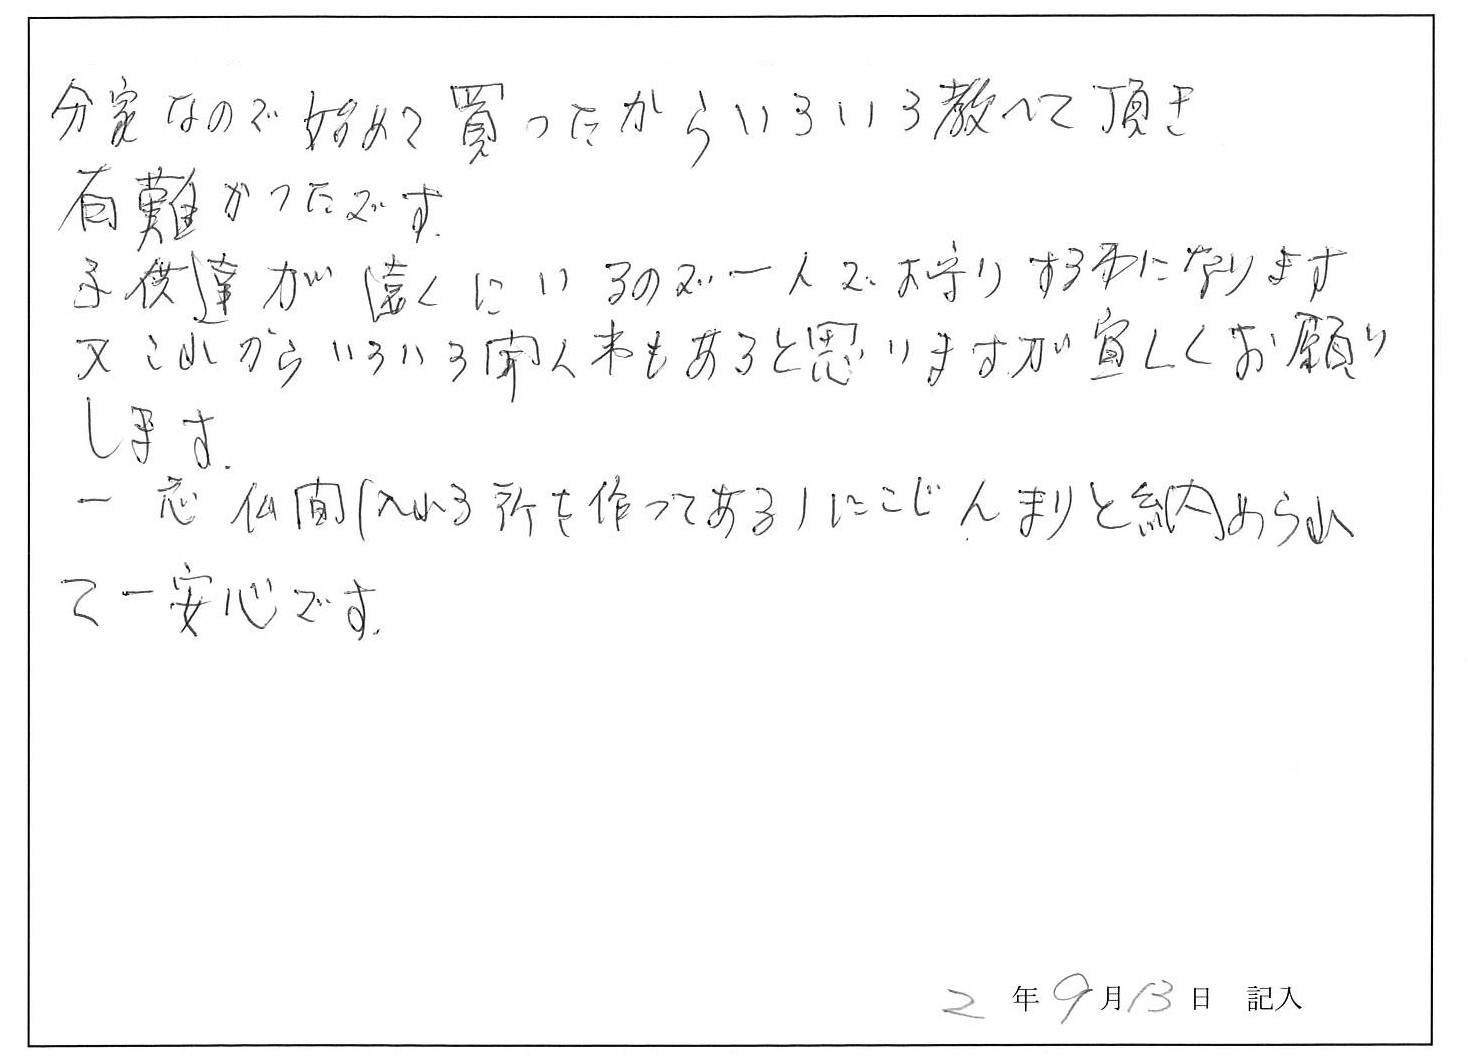 分家なので始めて買ったからいろいろ教へて頂き
有難かったです.
子供達が遠くにいるので一人でお守りする事になります
又これからいろいろ聞く事もあると思いますが宜しくお願い
します.
一応仏間(入れる所を作ってある)にこじんまりと納められ
て一安心です.
2年9月13日 記入